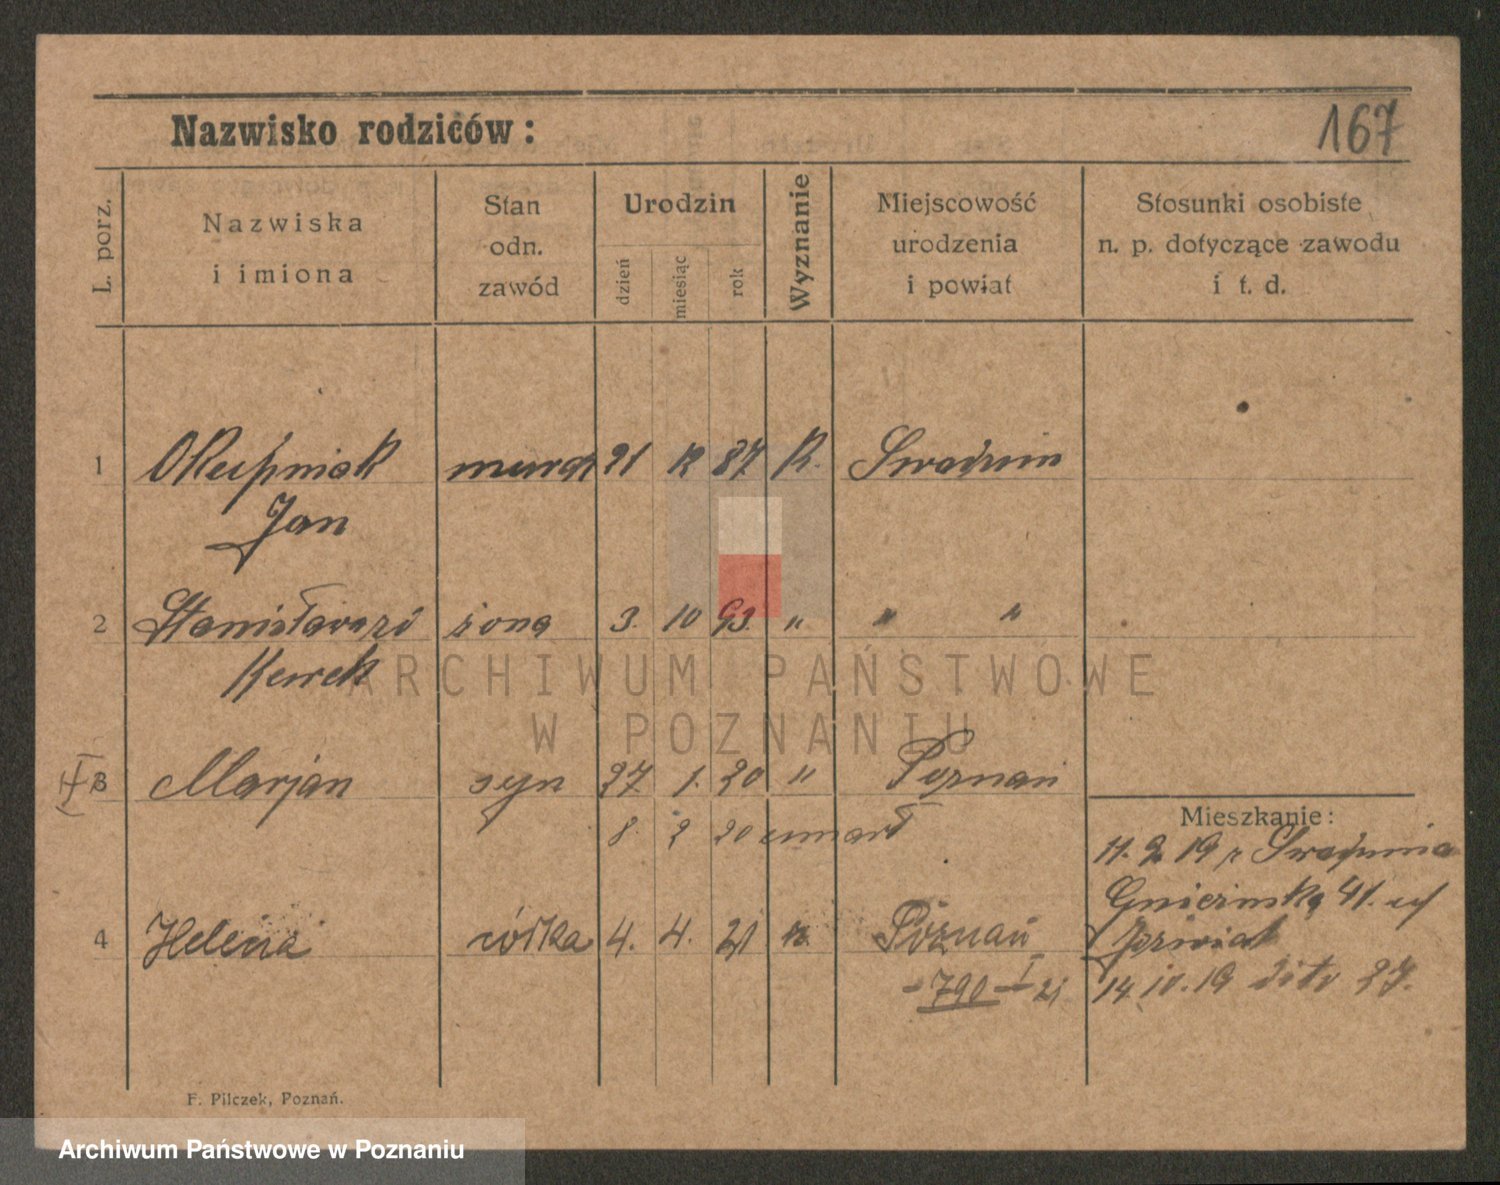 Nazwisko rodziców:
167
L. porz.
Nazwiska
i imiona
Stan
odn.
zawód
Urodzin
dzień
miesiąc
rok
Wyznanie
Miejscowość
urodzenia
i powiat
Stosunki osobiste
n. p. dotyczące zawodu
i t. d.
1 murarz 21 12 87 K.
Jan
2 żona 3. 10 93. " " "
ARCHIWUM PAŃSTWOWE
W POZNANIU
3 Marjan syn 27. 1. 20 " Poznań
8. 2 20 umarł
4 Helena córka 4. 4. 21 k. Poznań
790 I 21
Mieszkanie:
11. 2 19 z
41.
14.10.19 dito 27.
F. Pilczek, Poznań.
Archiwum Państwowe w Poznaniu